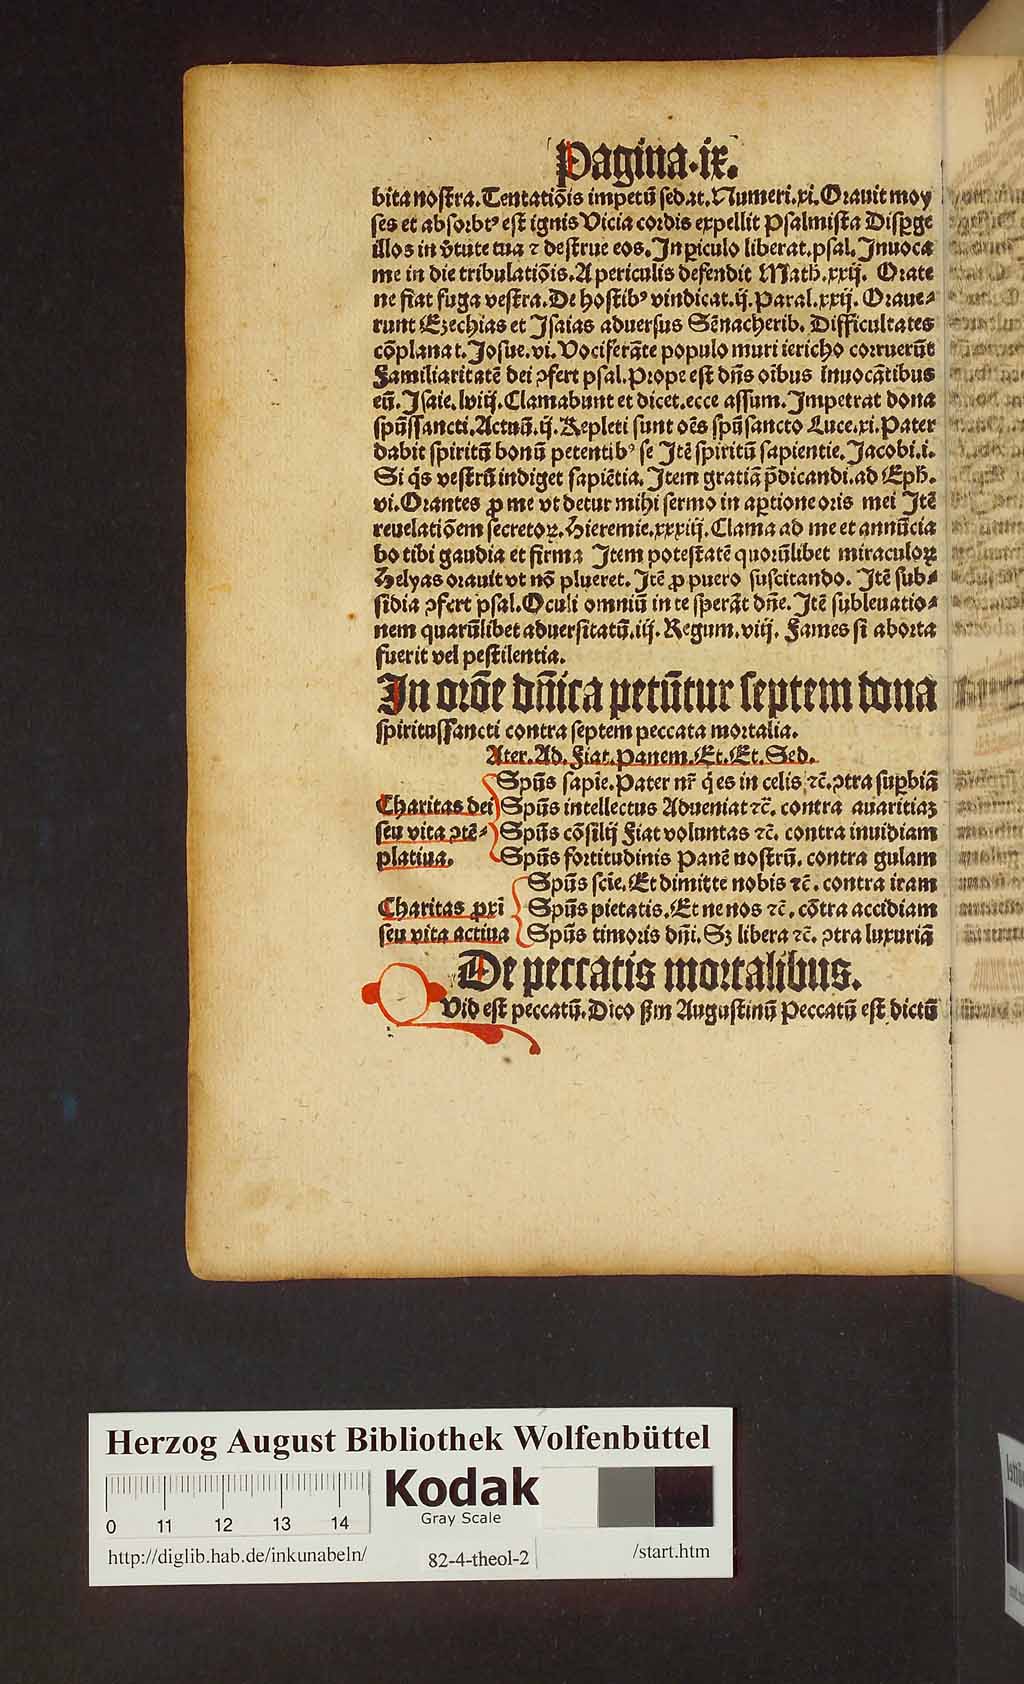 Pagina.ix.
bita nostra. Tentatiōis impetū sedat. Numeri.xi. Orauit moy
ses et absorbtꝰ est ignis Vicia cordis expellit Psalmista Disꝑge
illos in v̄tute tua ⁊ destrue eos. In ꝑiculo liberat. psal. Inuoca
me in die tribulatiōis. A periculis defendit Math.xxij. Orate
ne fiat fuga vestra. De hostibꝰ vindicat.ij. Paral.xxij. Oraue-
runt Ezechias et Isaias aduersus Sēnacherib. Difficultates
cōplanat. Josue.vi. Vociferāte populo muri iericho corruerūt
Familiaritatē dei ꝯfert psal. Prope est dn̄s oībus inuocātibus
eū. Isaie.lviij. Clamabunt et dicet. ecce assum. Impetrat dona
spūssancti. Actuū.ij. Repleti sunt oēs spūsancto Luce.xi. Pater
dabit spiritū bonū petentibꝰ se Itē spiritū sapientie. Jacobi.i.
Si q̄s vestrū indiget sapiētia. Item gratiā p̄dicandi. ad Eph.
vi. Orantes ꝓ me vt detur mihi sermo in aꝑtione oris mei Itē
reuelatiōem secretoꝝ. Hieremie.xxxiij. Clama ad me et annūcia
bo tibi gaudia et firma Item potestatē quorūlibet miraculoꝝ
Helyas orauit vt nō plueret. Itē ꝓ puero suscitando. Itē sub-
sidia ꝯfert psal. Oculi omniū in te sperāt dn̄e. Itē subleuatio-
nem quarūlibet aduersitatū.iij. Regum.viij. Fames si aborta
fuerit vel pestilentia.
In orōe dn̄ica petūtur septem dona
spiritussancti contra septem peccata mortalia.
Ater. Ad. Fiat. Panem. Et. Et. Sed.
Spūs sapīe. Pater nr̄ q̄ es in celis ⁊c̄. ꝯtra suꝑbiā
Charitas dei Spūs intellectus Adueniat ⁊c̄. contra auaritiaꝫ
seu vita ꝯtē- Spūs cōsilij Fiat voluntas ⁊c̄. contra inuidiam
platiua. Spūs fortitudinis Panē nostrū. contra gulam
Spūs scīe. Et dimitte nobis ⁊c̄. contra iram
Charitas ꝓxī Spūs pietatis. Et ne nos ⁊c̄. cōtra accidiam
seu vita actiua Spūs timoris dn̄i. Sꝫ libera ⁊c̄. ꝯtra luxuriā
De peccatis mortalibus.
QVid est peccatū. Dico ẜm Augustinū Peccatū est dictū
Herzog August Bibliothek Wolfenbüttel
Kodak
Gray Scale
0 11 12 13 14
http://diglib.hab.de/inkunabeln/ 82-4-theol-2 /start.htm